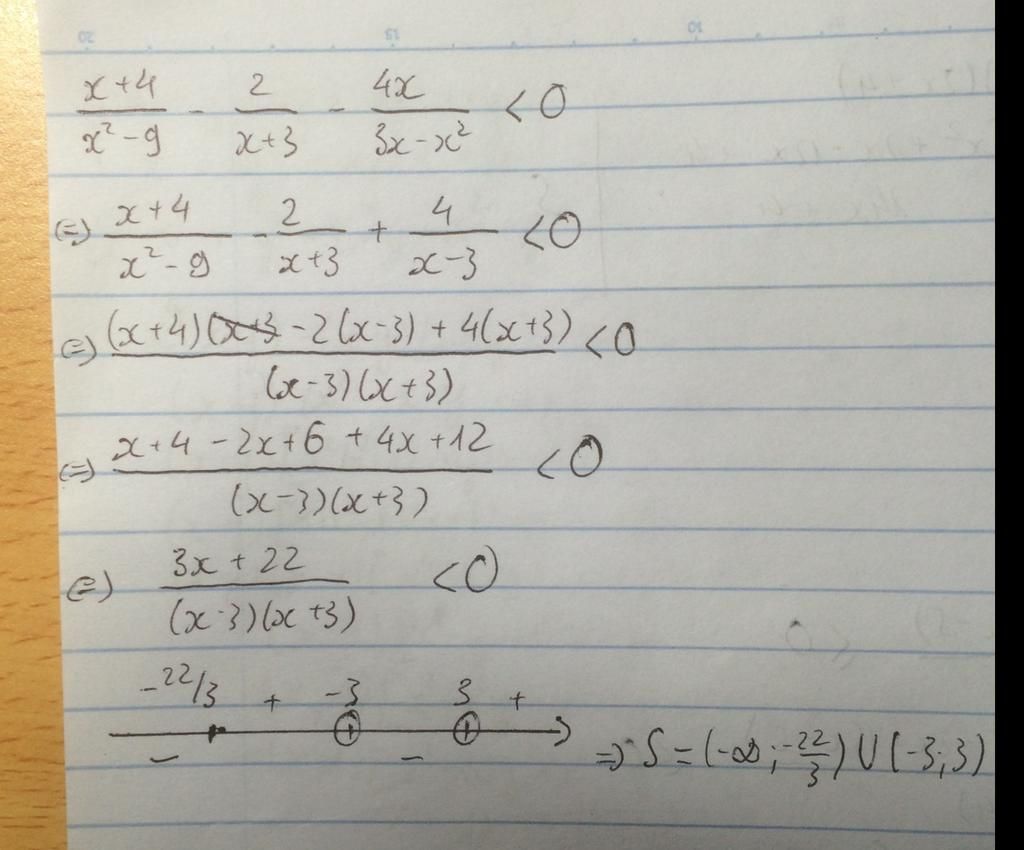 (x+4)/(x²-9) - 2/(x+3) - 4x/(3x-x²) < 0
(=) (x+4)/(x²-9) - 2/(x+3) + 4/(x-3) < 0
(=) ((x+4)(x+3 - 2(x-3) + 4(x+3))/((x-3)(x+3)) < 0
(=) (x+4 - 2x+6 + 4x+12)/((x-3)(x+3)) < 0
(=) (3x + 22)/((x-3)(x+3)) < 0
-22/3 + -3 3 +
- -
=> S = (-∞; -22/3) U (-3; 3)